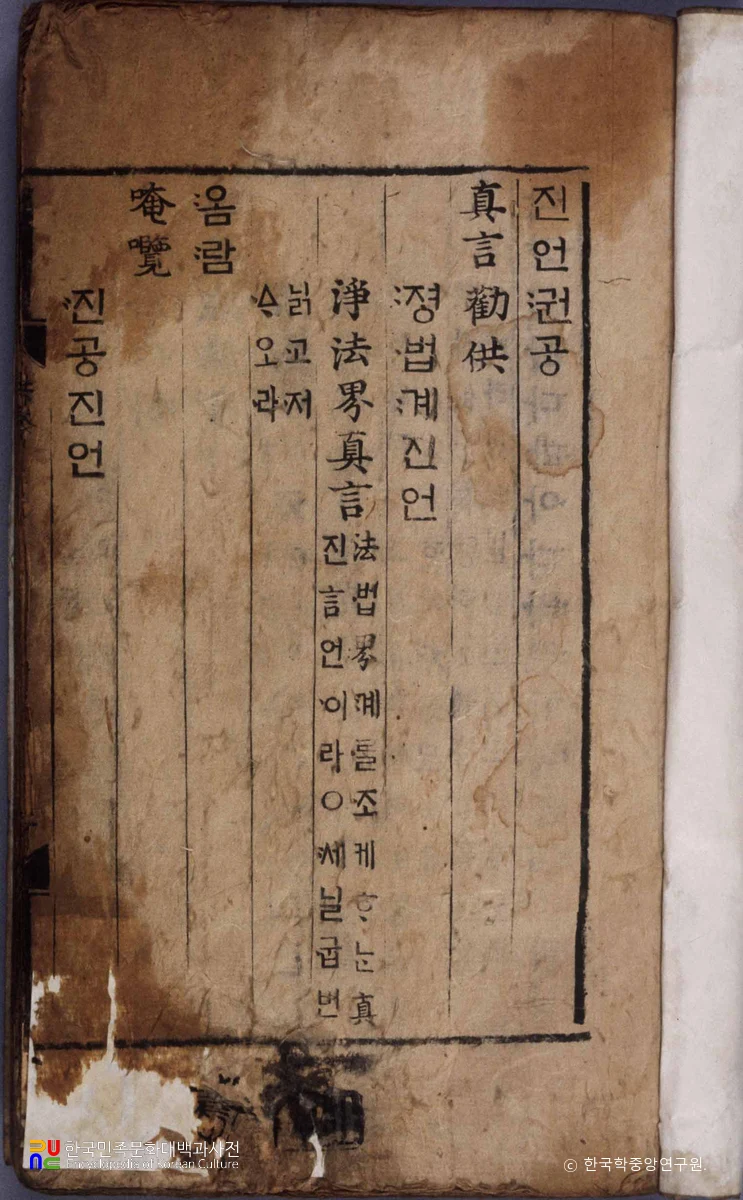 진언권공
真言勸供
졍법계진언
淨法界真言
法법界계를조케ᄒᆞ논真
진言언이라○세닐굽번
닑고져
ᄉᆞ오라
옴람
唵囕
진공진언
한국민족문화대백과사전
Encyclopedia of Korean Culture
© 한국학중앙연구원.